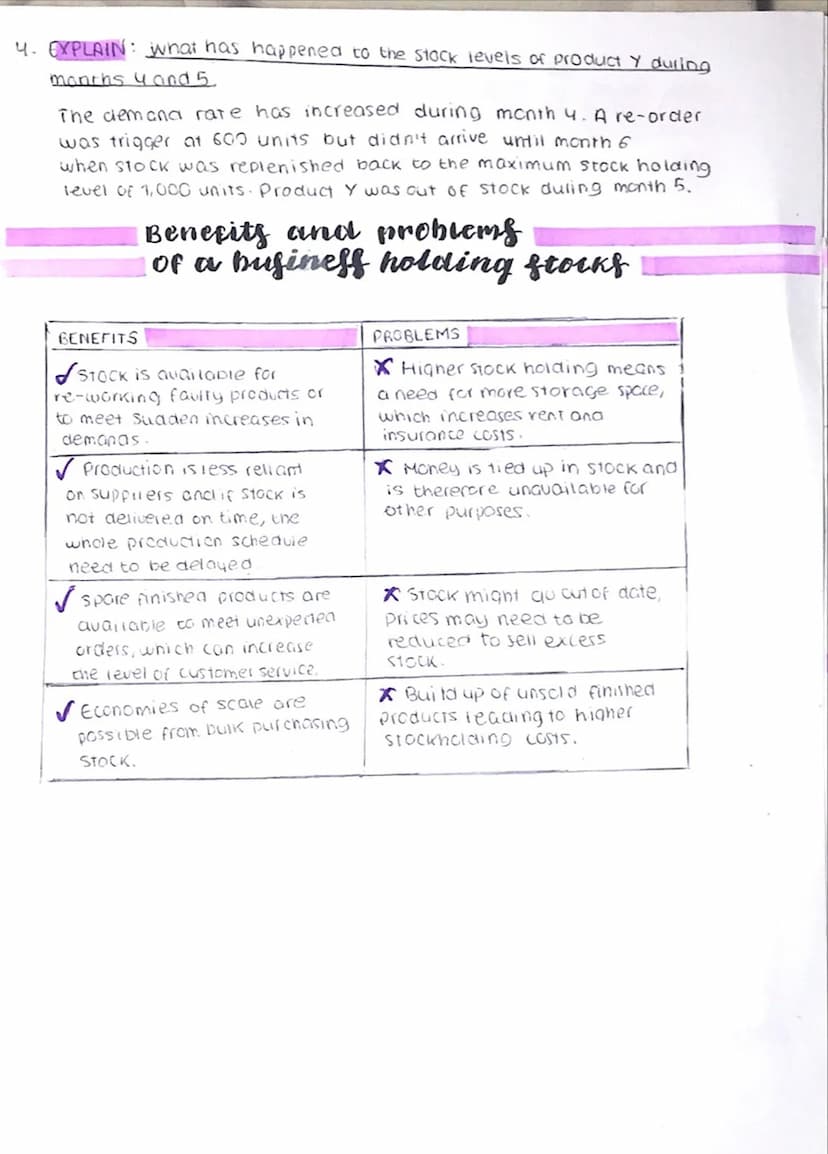 4. EXPLAIN: What has happened to the stock levels of product Y during
months 4 and 5.
The demand rate has increased during month 4. A re-order
was trigger at 600 units but didn't arrive until month 6
when stock was replenished back to the maximum stock holding
level of 1,000 units. Product Y was out of stock during month 5.
Benefits and problems
of a business holding stocks
BENEFITS
✓ Stock is available for
re-working faulty products or
to meet sudden increases in
demands.
✓ Production is less reliant
on suppliers and if stock is
not delivered on time, the
whole production schedule
need to be delayed
✓ Spare finished products are
available to meet unexpected
orders, which can increase
the level of customer service.
✓ Economies of scale are
possible from bulk purchasing
stock.
PROBLEMS
✗ Higher stock holding means
a need for more storage space,
which increases rent and
insurance costs.
✗ Money is tied up in stock and
is therefore unavailable for
other purposes.
✗ Stock might go out of date,
prices may need to be
reduced to sell excess
stock.
✗ Build up of unsold finished
products leading to higher
stockholding costs.